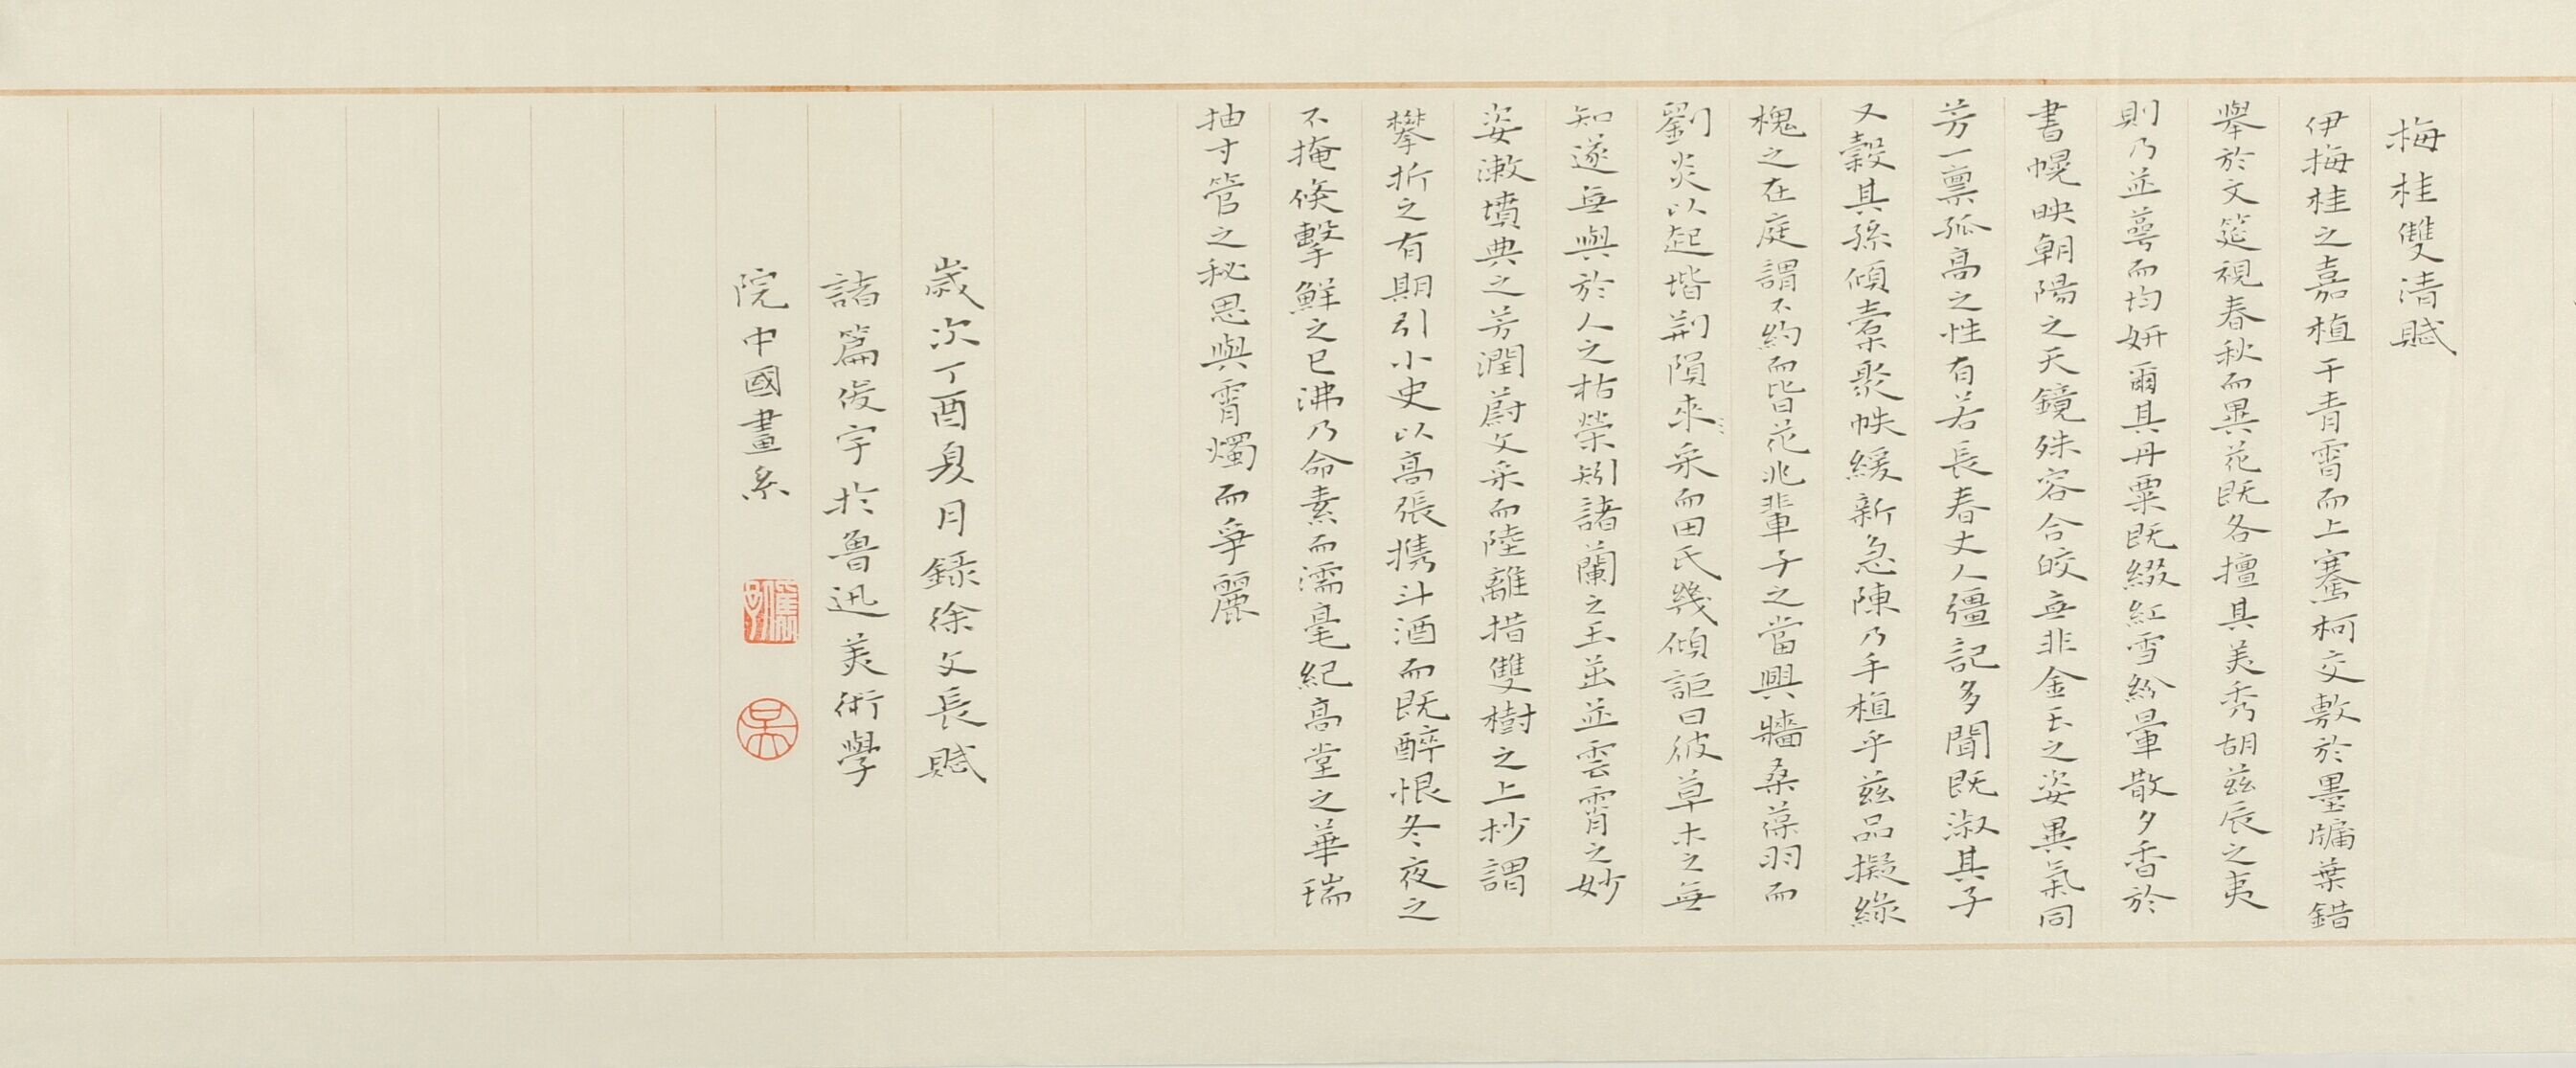 梅桂雙清賦
伊梅桂之嘉植干青霄而上騫柯交敷於墨牖葉錯
舉於文筵視春秋而異花既各擅其美秀胡茲辰之夷
則乃並萼而均妍爾其丹粟既綴紅雪紛暈散夕香於
書幌映朝陽之天鏡殊容合皎無非金玉之姿異氣同
芳一稟孤高之性有若長春丈人彊記多聞既淑其子
又穀其孫傾橐聚帙緩新急陳乃手植乎茲品擬綠
槐之在庭謂不約而皆花兆輩子之當興牆桑葆羽而
劉炎以起堦荊隕來采而田氏幾傾詎曰彼草木之無
知遂無與於人之枯榮矧諸蘭之玉茁並雲霄之妙
姿漱墳典之芳潤蔚文采而陸離措雙樹之上杪謂
攀折之有期引小史以高張攜斗酒而既醉恨冬夜之
不掩倏擊鮮之已沸乃命素而濡毫紀高堂之華瑞
抽寸管之秘思與霄燭而爭麗
歲次丁酉夏月錄徐文長賦
諸篇俊宇於魯迅美術學
院中國畫系